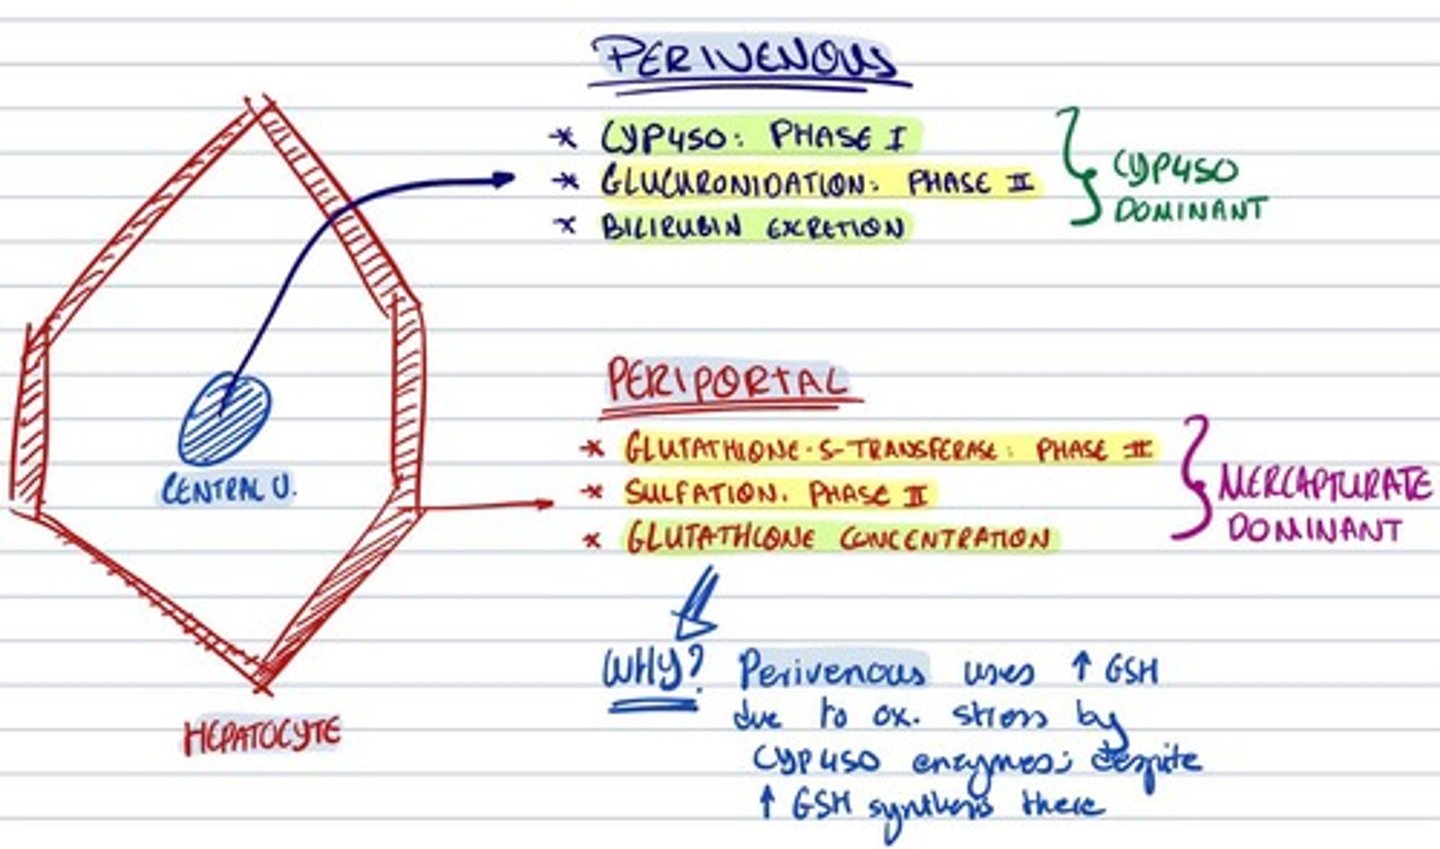 PERIVENOUS
* CYP450: PHASE I
* GLUCURONIDATION: PHASE II
* BILIRUBIN EXCRETION
CYP450
DOMINANT
CENTRAL V.
HEPATOCYTE
PERIPORTAL
* GLUTATHIONE-S-TRANSFERASE: PHASE II
* SULFATION: PHASE II
* GLUTATHIONE CONCENTRATION
MERCAPTURATE
DOMINANT
WHY? Perivenous uses ↑ GSH
due to ox. stress by
CYP450 enzymes; despite
↑ GSH synthesis there